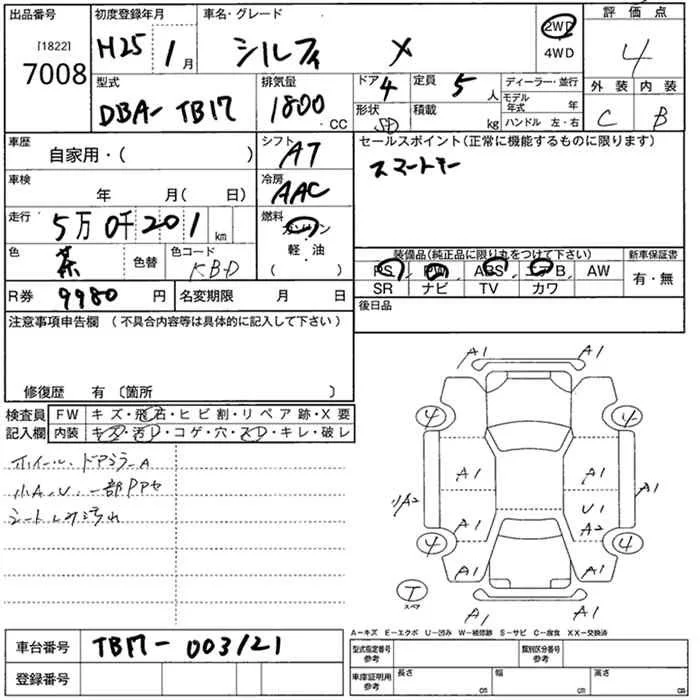 出品番号
[1822]
7008
初度登録年月
H25 1月
車名・グレード
シルフィ X
2WD
4WD
評価点
4
外装 内装
C B
型式
DBA-TB17
排気量
1800 CC
ドア 4
形状 SD
定員 5人
積載 kg
ディーラー・並行
モデル年式 年
ハンドル 左・右
車歴
自家用・( )
シフト
AT
セールスポイント(正常に機能するものに限ります)
スマートキー
車検
年 月( 日)
冷房
AAC
走行
5万0千201km
燃料
ガソリン・
軽・油
( )
色
茶
色替
色コード
KBD
装備品(純正品に限り丸をつけて下さい)
新車保証書
PS PW ABS エアB AW
有・無
SR ナビ TV カワ
R券 9980円
名変期限 月 日
後日品
注意事項申告欄(不具合内容等は具体的に記入して下さい)
修復歴 有〔箇所 〕
検査員
記入欄
FW キズ・飛石・ヒビ割・リペア跡・X要
内装 キズ・汚レ・コゲ・穴・スレ・キレ・破レ
ホイール、ドアミラーA
小A、U、一部Pアセ
シートしみ汚れ
A1 A1
4 4
A1 A1
小A2 A1
U1
A1 A2
4 4
A1 A1
T
スペア
A1 A1
A-キズ E-エクボ U-凹み W-補修跡 S-サビ C-腐食 XX-交換済
車台番号
TB17-003121
登録番号
型式指定番号
参考
類別区分番号
参考
車庫証明用
参考
長さ cm
幅 cm
高さ cm